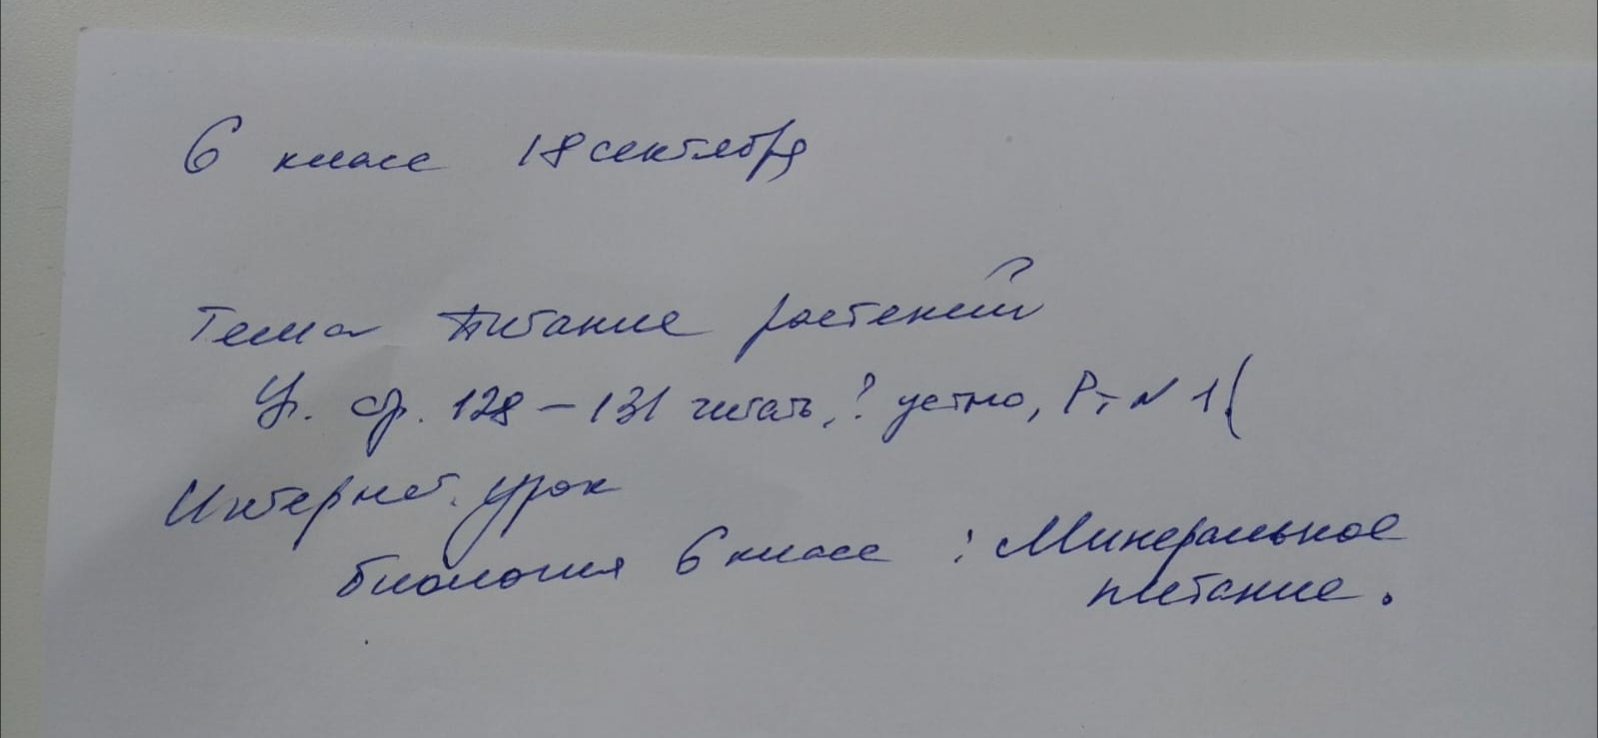 6 класс 18 сентября
Тема Питание растений
У. стр. 128 – 131 читать, ? устно, Рт № 1 (
Интернет. урок
биология 6 класс : Минеральное
питание.